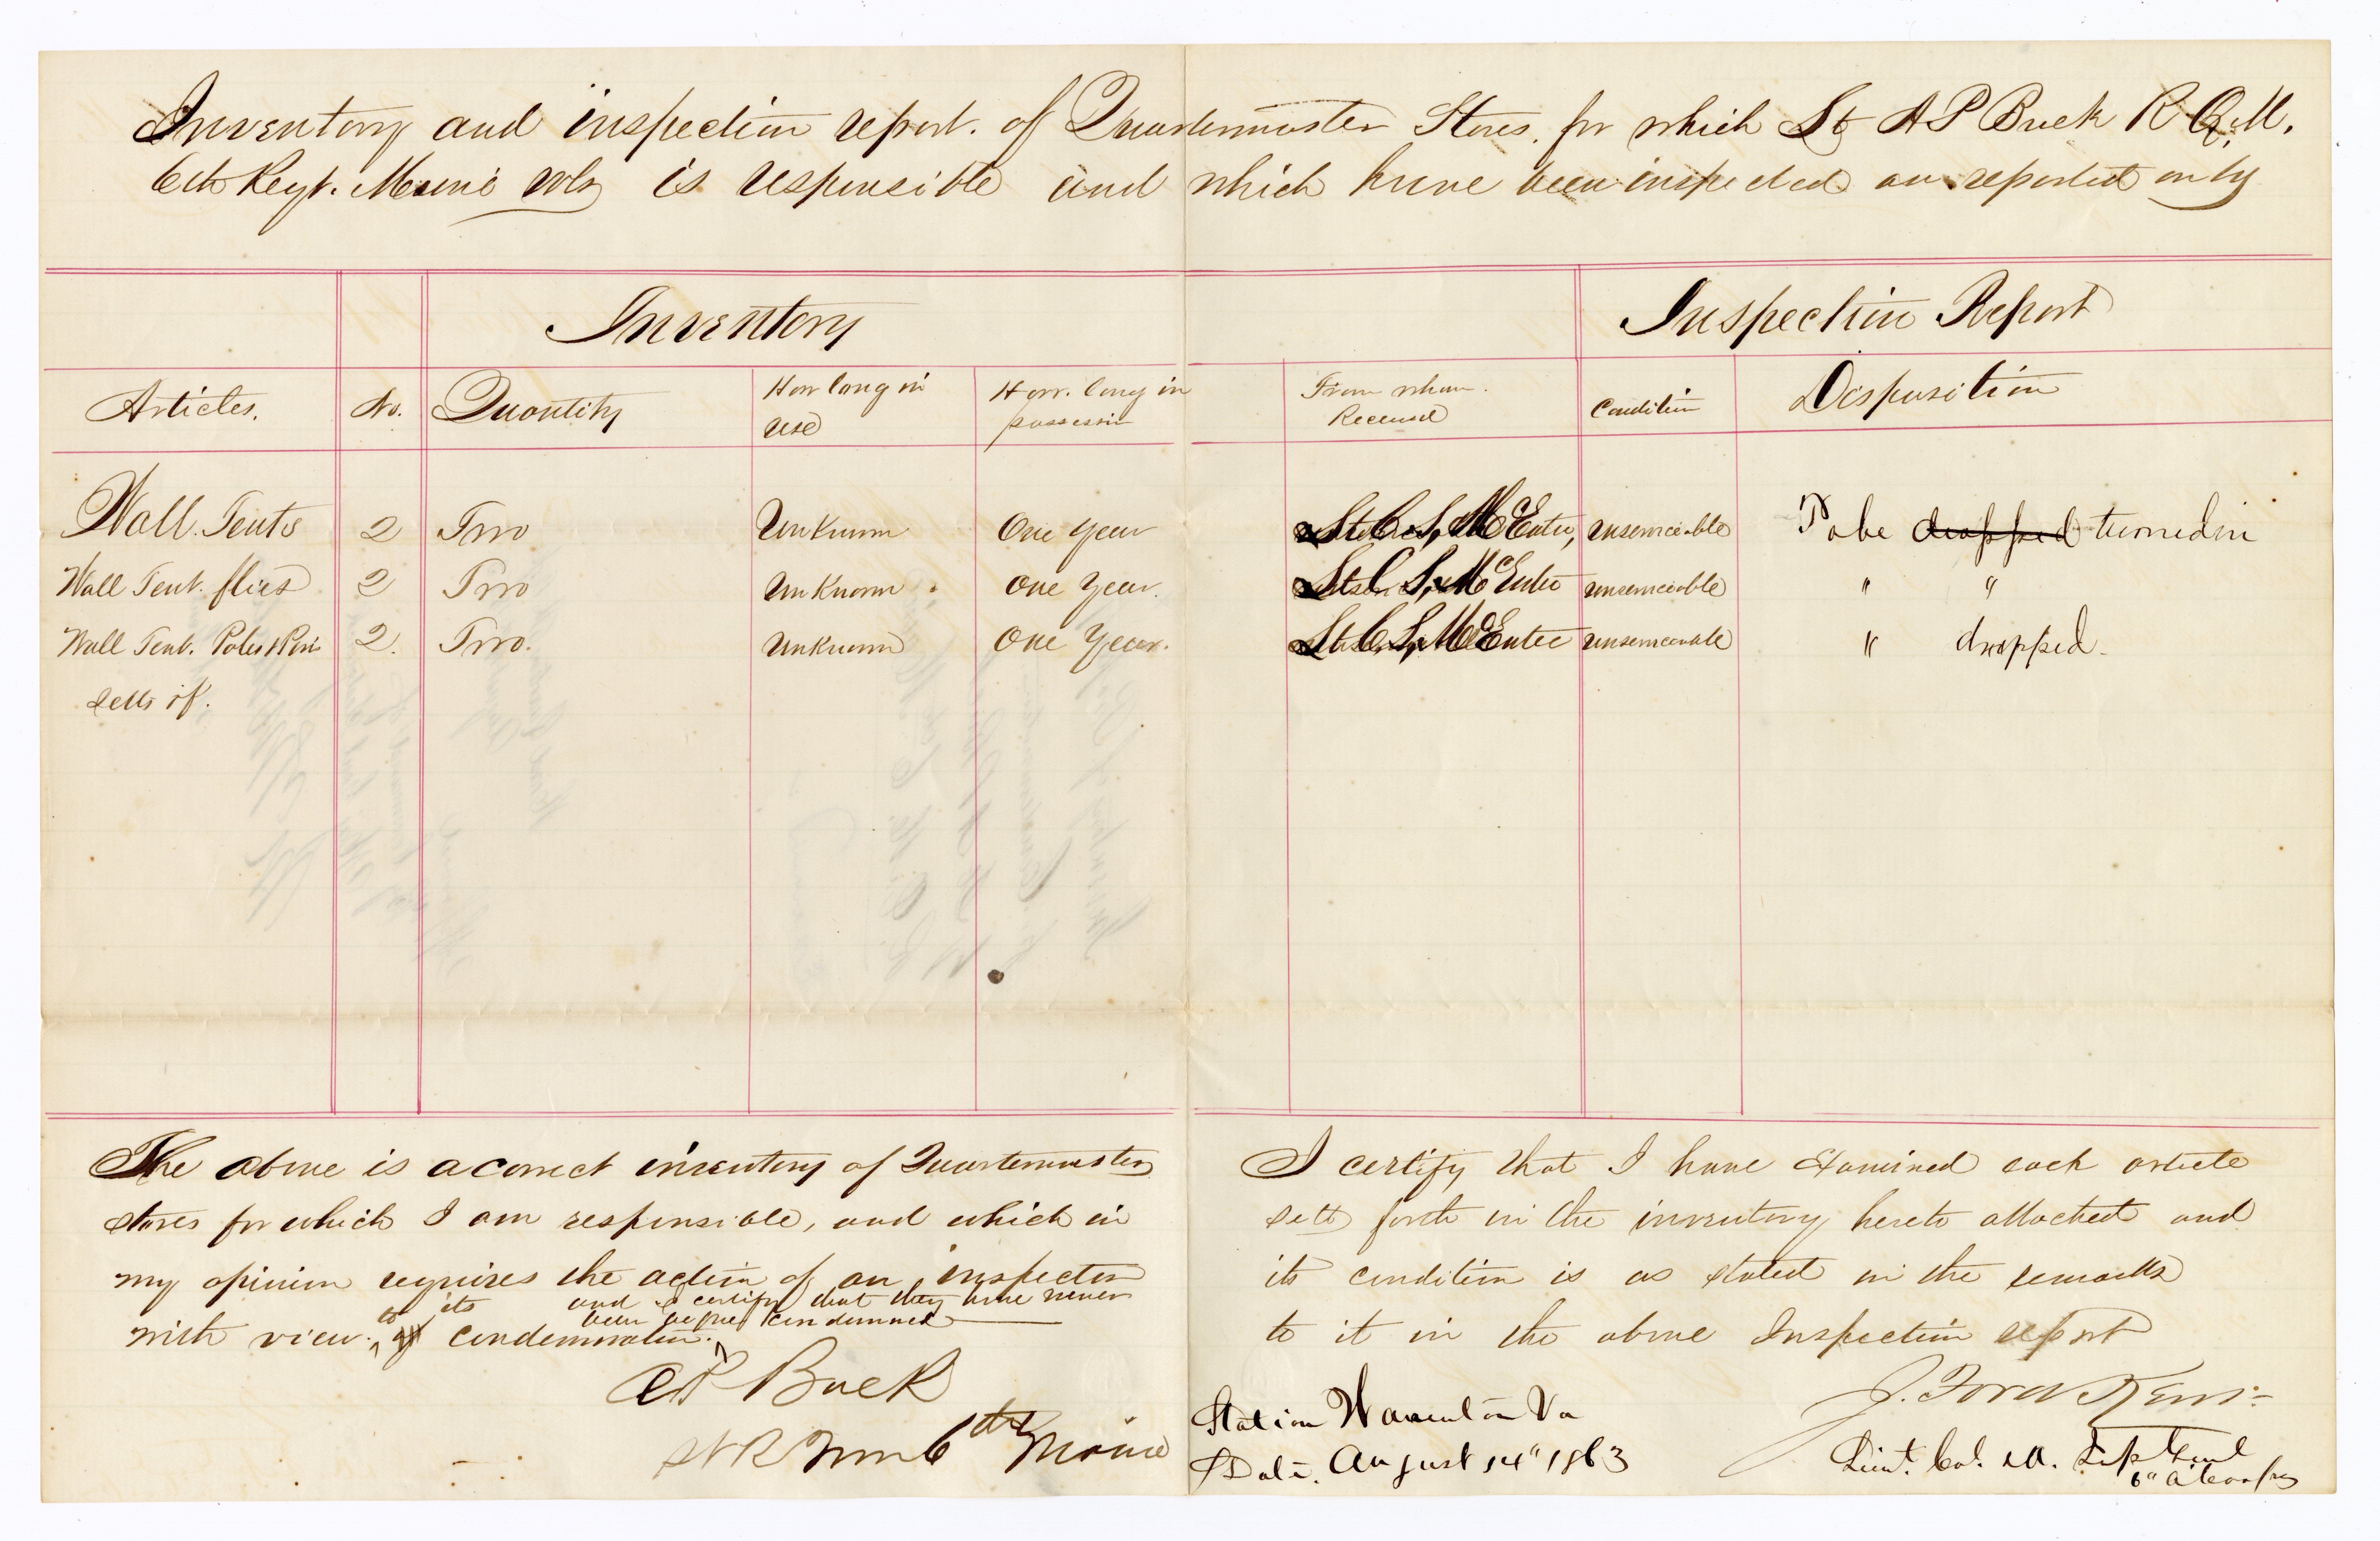 Inventory and inspection report. of Quartermaster Stores. for which Lt A P Buck R. Q. M.
6th Regt. Maine vols is responsible and which have been inspected an reported on by
Inventory
Inspection Report
Articles. No. Quantity How long in use How long in possession From whom Received Condition Disposition
Wall. Tents 2 Two Unknown One Year Lt C. S. McEntee, unserviceable To be dropped turned in
Wall Tent. flies 2 Two Unknown One Year. Lt C S. McEntee unserviceable " "
Wall Tent. Poles & Pins 2. Two. Unknown One Year. Lt C. S. McEntee unserviceable " dropped.
setts of.
The above is a correct inventory of Quartermaster
stores for which I am responsible, and which in
my opinion requires the action of an inspector
and I certify that they have never
been before condemned
with view. to its condemnation.
A P Buck
6th Maine
I certify that I have examined each article
sett forth in the inventory hereto attached and
its condition is as stated in the remarks
to it in the above Inspection report
J. Ford Kent
Lieut. Col. & A. Insp Genl
6" A. Corps
Station Warrenton Va
Date. August 14" 1863